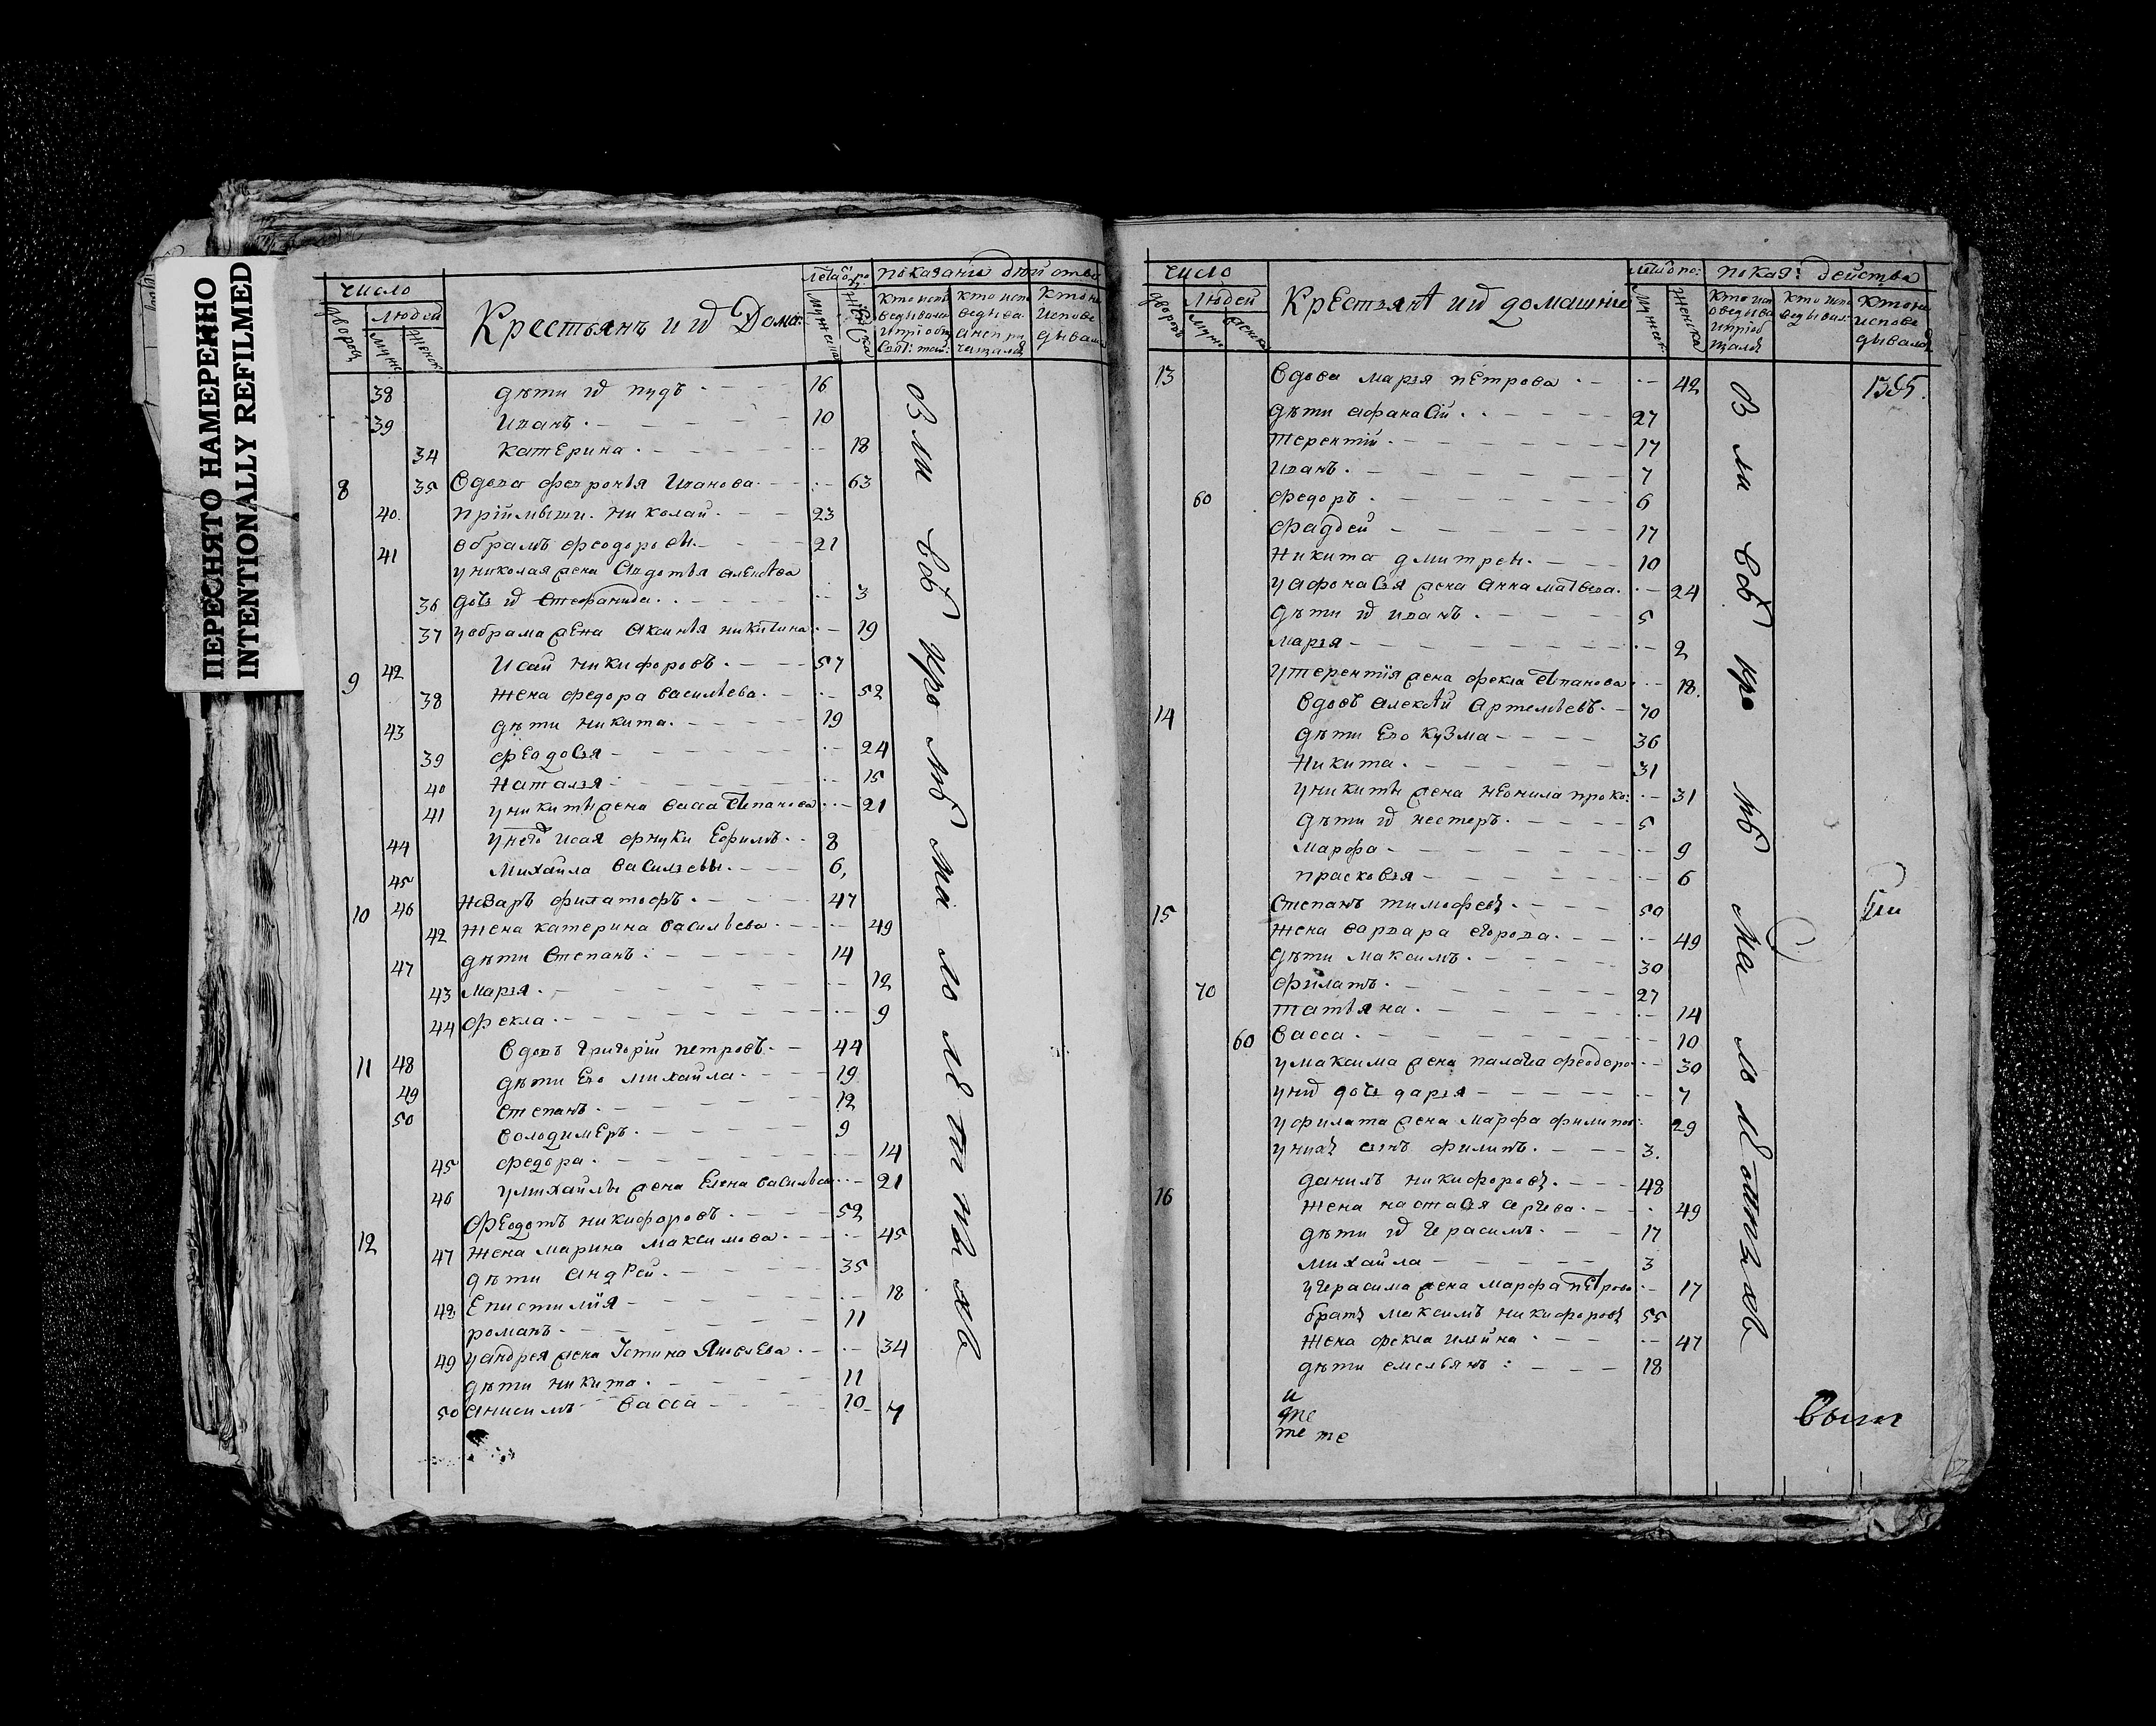 ПЕРЕСНЯТО НАМЕРЕННО
INTENTIONALLY REFILMED
число
Людей
Крестьянъ и их Дома:
показание
38 дѣти их пудъ 16
39 Иванъ 10
34 Катерина 18
8 35 вдова февронія Иванова 63
40 пріймыши Николай 23
41 обрамъ феодоровы 21
у николая жена Авдотья алексѣва
36 дочь их Стефанида 3
37 у обрама жена Аксинья никитина 19
9 42 Исай никифоровъ 57
38 жена федора васильева 52
43 дѣти никита 19
39 феодосья 24
40 Наталья 15
41 у никиты жена васса степанова 21
44 у него исая внуки Ефимъ 8
45 Михайла васильевы 6
10 46 Назаръ филатовъ 47
42 жена катерина васильева 49
47 дѣти Степанъ 14
43 Марья 12
44 фекла 9
11 48 вдовъ григорій петровъ 44
49 дѣти Его михайла 19
50 степанъ 12
володимеръ 9
45 федора 14
46 у михайлы жена Елена васильева 21
12 феодотъ никифоровъ 52
47 жена марина максимова 45
дѣти андрей 35
48 Епистимія 18
романъ 11
49 у андрея жена Устина Яковлева 34
дѣти никита 11
50 анисимъ васса 10 7
В ли соб кро мѣ ма ло лѣ т нѣ хъ
число
Людей
Крестьянъ и их домашніе
показ: действа
13 вдова марья петрова 42
дѣти афанасій 27
терентій 17
Иванъ 7
60 федоръ 6
фаддей 17
Никита дмитреи 10
у афонасья жена анна матвева 24
дѣти их иванъ 5
марья 2
у терентія жена фекла степанова 18
14 вдовъ алексѣй артемьевъ 70
дѣти Его кузма 36
Никита 31
у никиты жена неонила проко: 31
дѣти их нестеръ 5
марфа 9
прасковья 6
15 степанъ тимофеевъ 50
жена варвара егорова 49
дѣти максимъ 30
70 филатъ 27
татьяна 14
60 васса 10
у максима жена палагя феодоро 30
у них дочь дарья 7
у филата жена марфа филипов: 29
у нихъ сынъ филипъ 3
16 данилъ никифоровъ 48
жена настасья сергева 49
дѣти их герасимъ 17
михайла 3
у герасима жена марфа петрова 17
братъ максимъ никифоровъ 55
жена фекла ильина 47
дѣти емельянъ 18
В ли соб кро мѣ ма ло лѣтнихъ